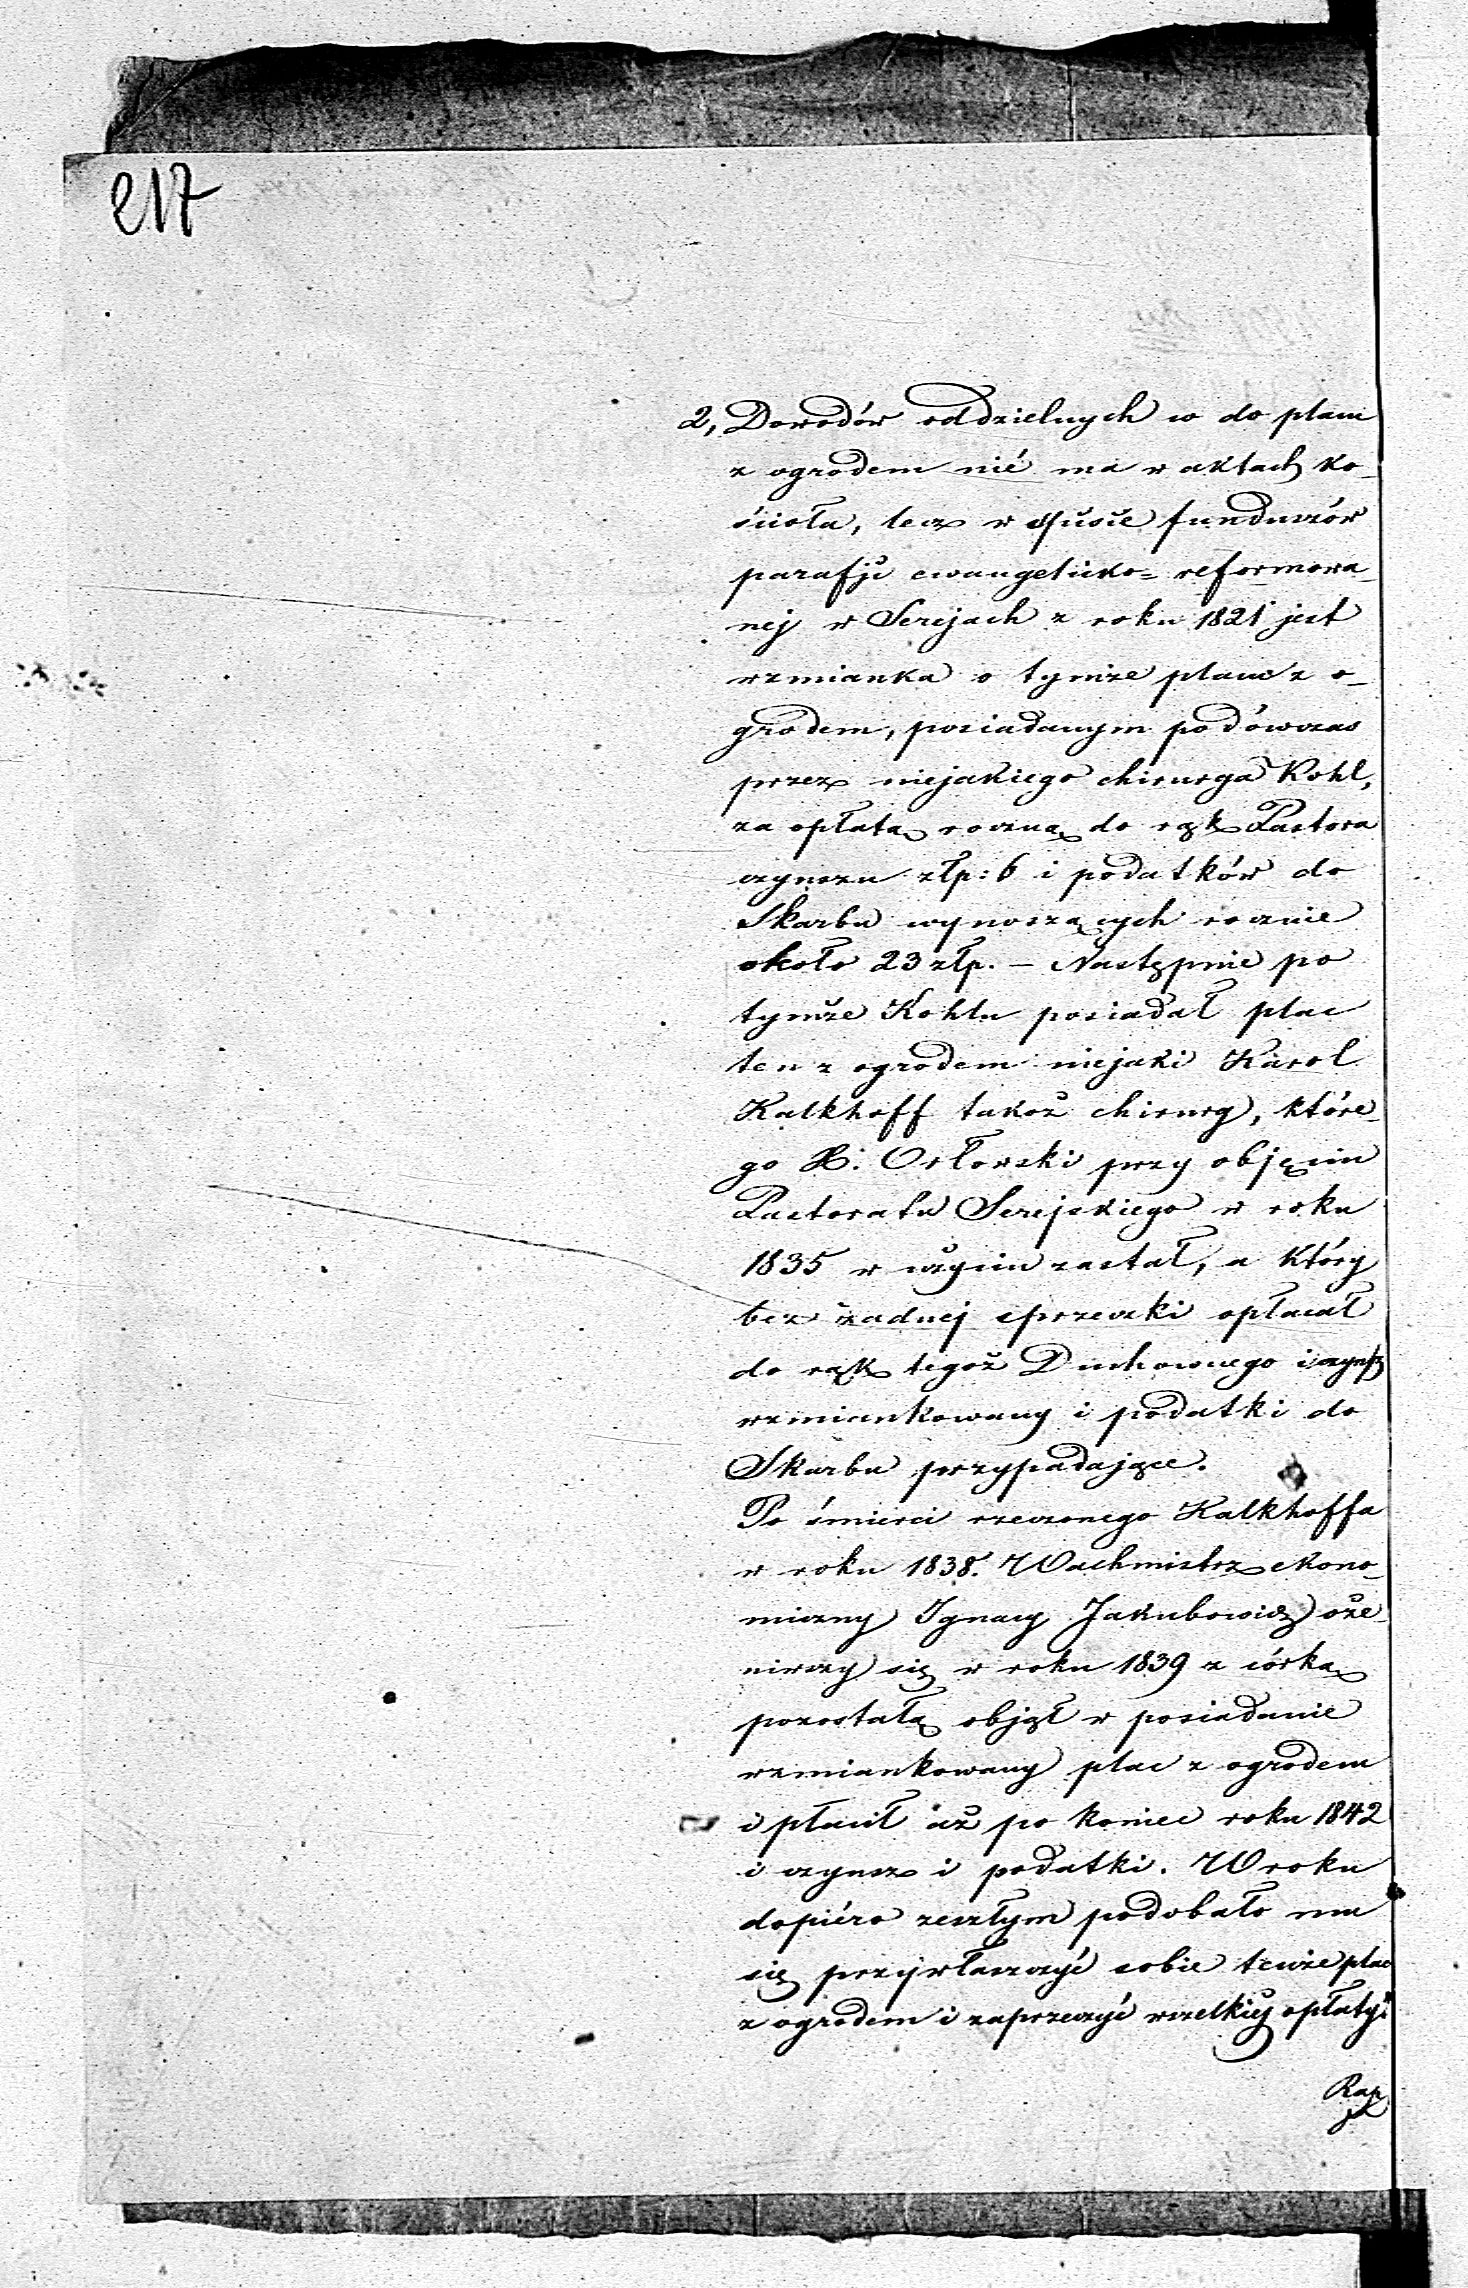 217
2, Dowodów oddzielnych co do placu
z ogrodem nié ma w aktach ko-
ścioła, lecz w spisie funduszów
parafji ewangelicko-reformowa-
nej w Serejach z roku 1821 jest
wzmianka o tymże placu z o-
grodem, posiadanym podówczas
przez niejakiego chirurga Kohl,
za opłatą roczną do rąk Pastora
czynszu złp: 6 i podatków do
Skarbu wynoszących rocznie
około 23 złp. – Następnie po
tymże Kohlu posiadał plac
ten z ogrodem niejaki Karol
Kalkhoff takoż chirurg, które-
go X: Orłowski przy objęciu
Pastoratu Serejskiego w roku
1835 w użyciu zastał, a który
bez żadnej sprzeczki opłacał
do rąk tegoż Duchownego i czynsz
wzmiankowany i podatki do
Skarbu przypadające.
Po śmierci rzeczonego Kalkhoffa
w roku 1838. Wachmistrz ekono-
miczny Ignacy Jakubowicz oże-
niwszy się w roku 1839 z córką
pozostałą objął w posiadanie
wzmiankowany plac z ogrodem
i płacił aż po koniec roku 1842
i czynsz i podatki. W roku
dopiéro zeszłym podobało mu
się przywłaszczyć sobie tenże plac
z ogrodem i zaprzeczyć wszelkiéj opłaty.